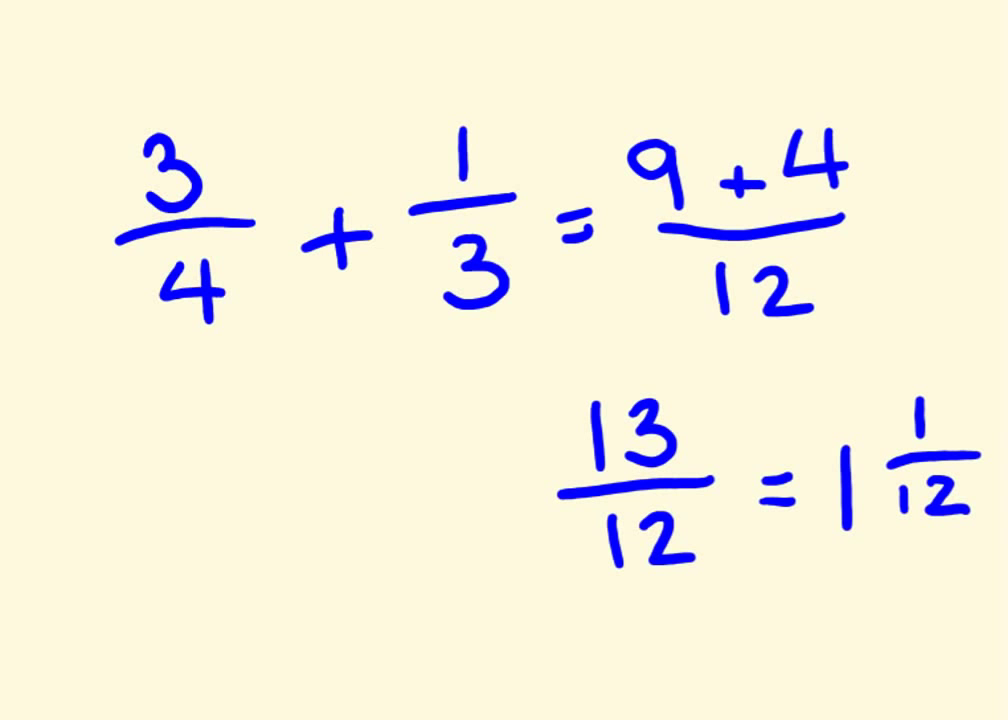 3/4 + 1/3 = (9 + 4)/12
13/12 = 1 1/12